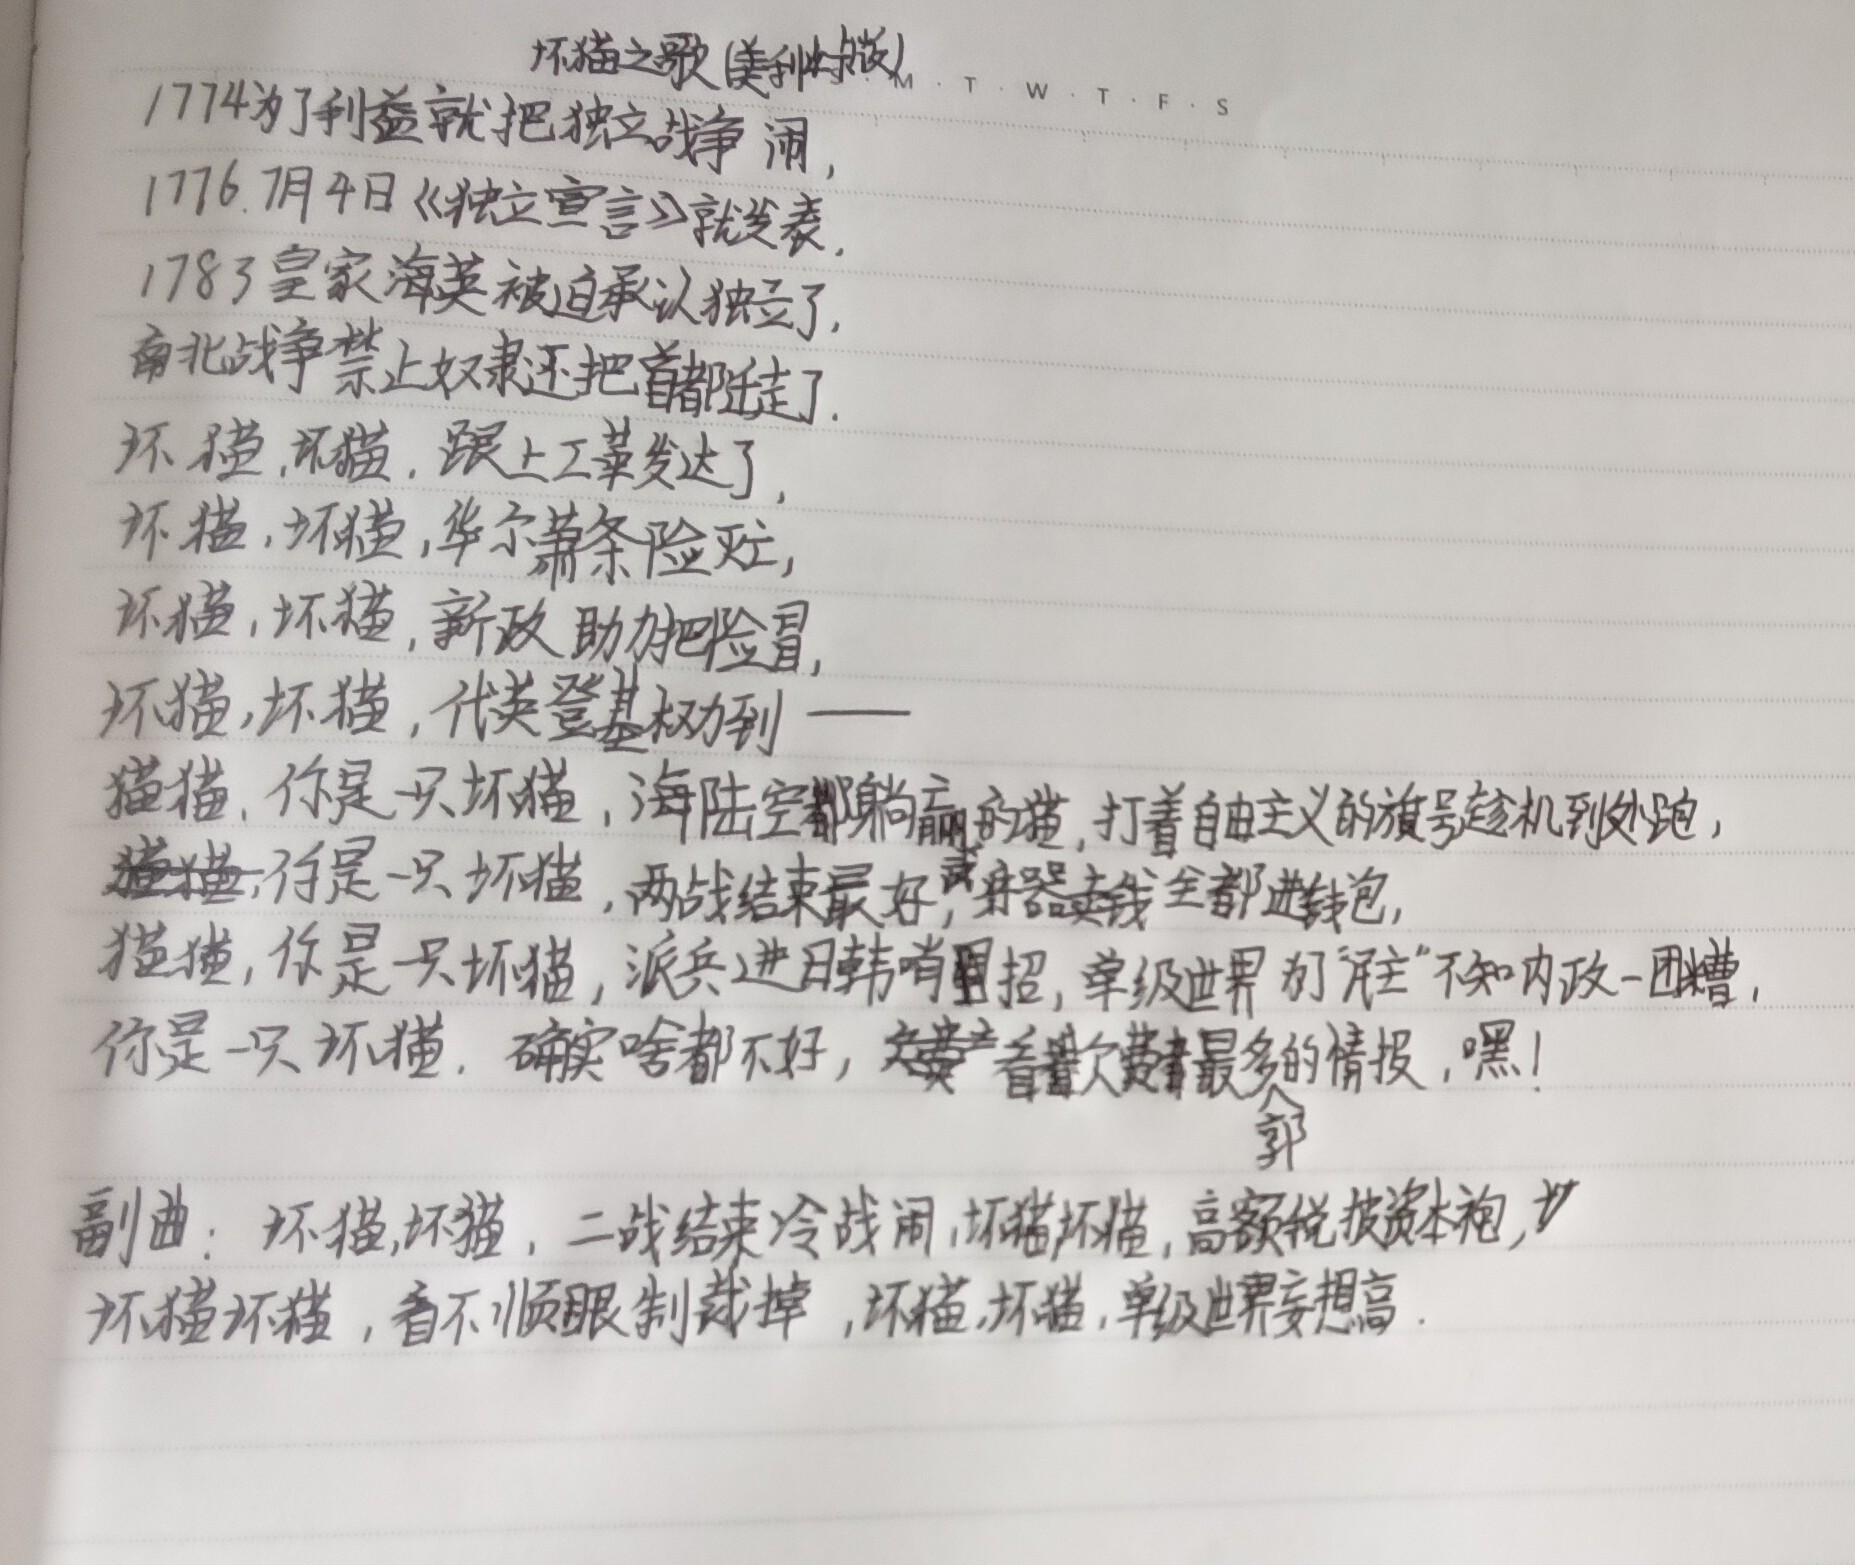 坏猫之歌(美利坚版)
M · T · W · T · F · S
1774为了利益就把独立战争闹,
1776.7月4日《独立宣言》就发表,
1783皇家海英被迫承认独立了,
南北战争禁止奴隶还把首都迁走了.
坏猫,坏猫,跟上工革发达了,
坏猫,坏猫,华尔萧条险灭亡,
坏猫,坏猫,新政助力把险冒,
坏猫,坏猫,代英登基权力到——
猫猫,你是一只坏猫,海陆空都躺赢的猫,打着自由主义的旗号趁机到处跑,
你是一只坏猫,两战结束最好,武器卖钱全都进钱包,
猫猫,你是一只坏猫,派兵进日韩哨招,单级世界为了"民主"不知内政一团糟,
你是一只坏猫.确实啥都不好,看着欠费最多的情报,嘿!
郭
副曲:坏猫,坏猫,二战结束冷战闹,坏猫坏猫,高额税披资本袍,
坏猫坏猫,看不顺眼制裁掉,坏猫,坏猫,单级世界妄想高.